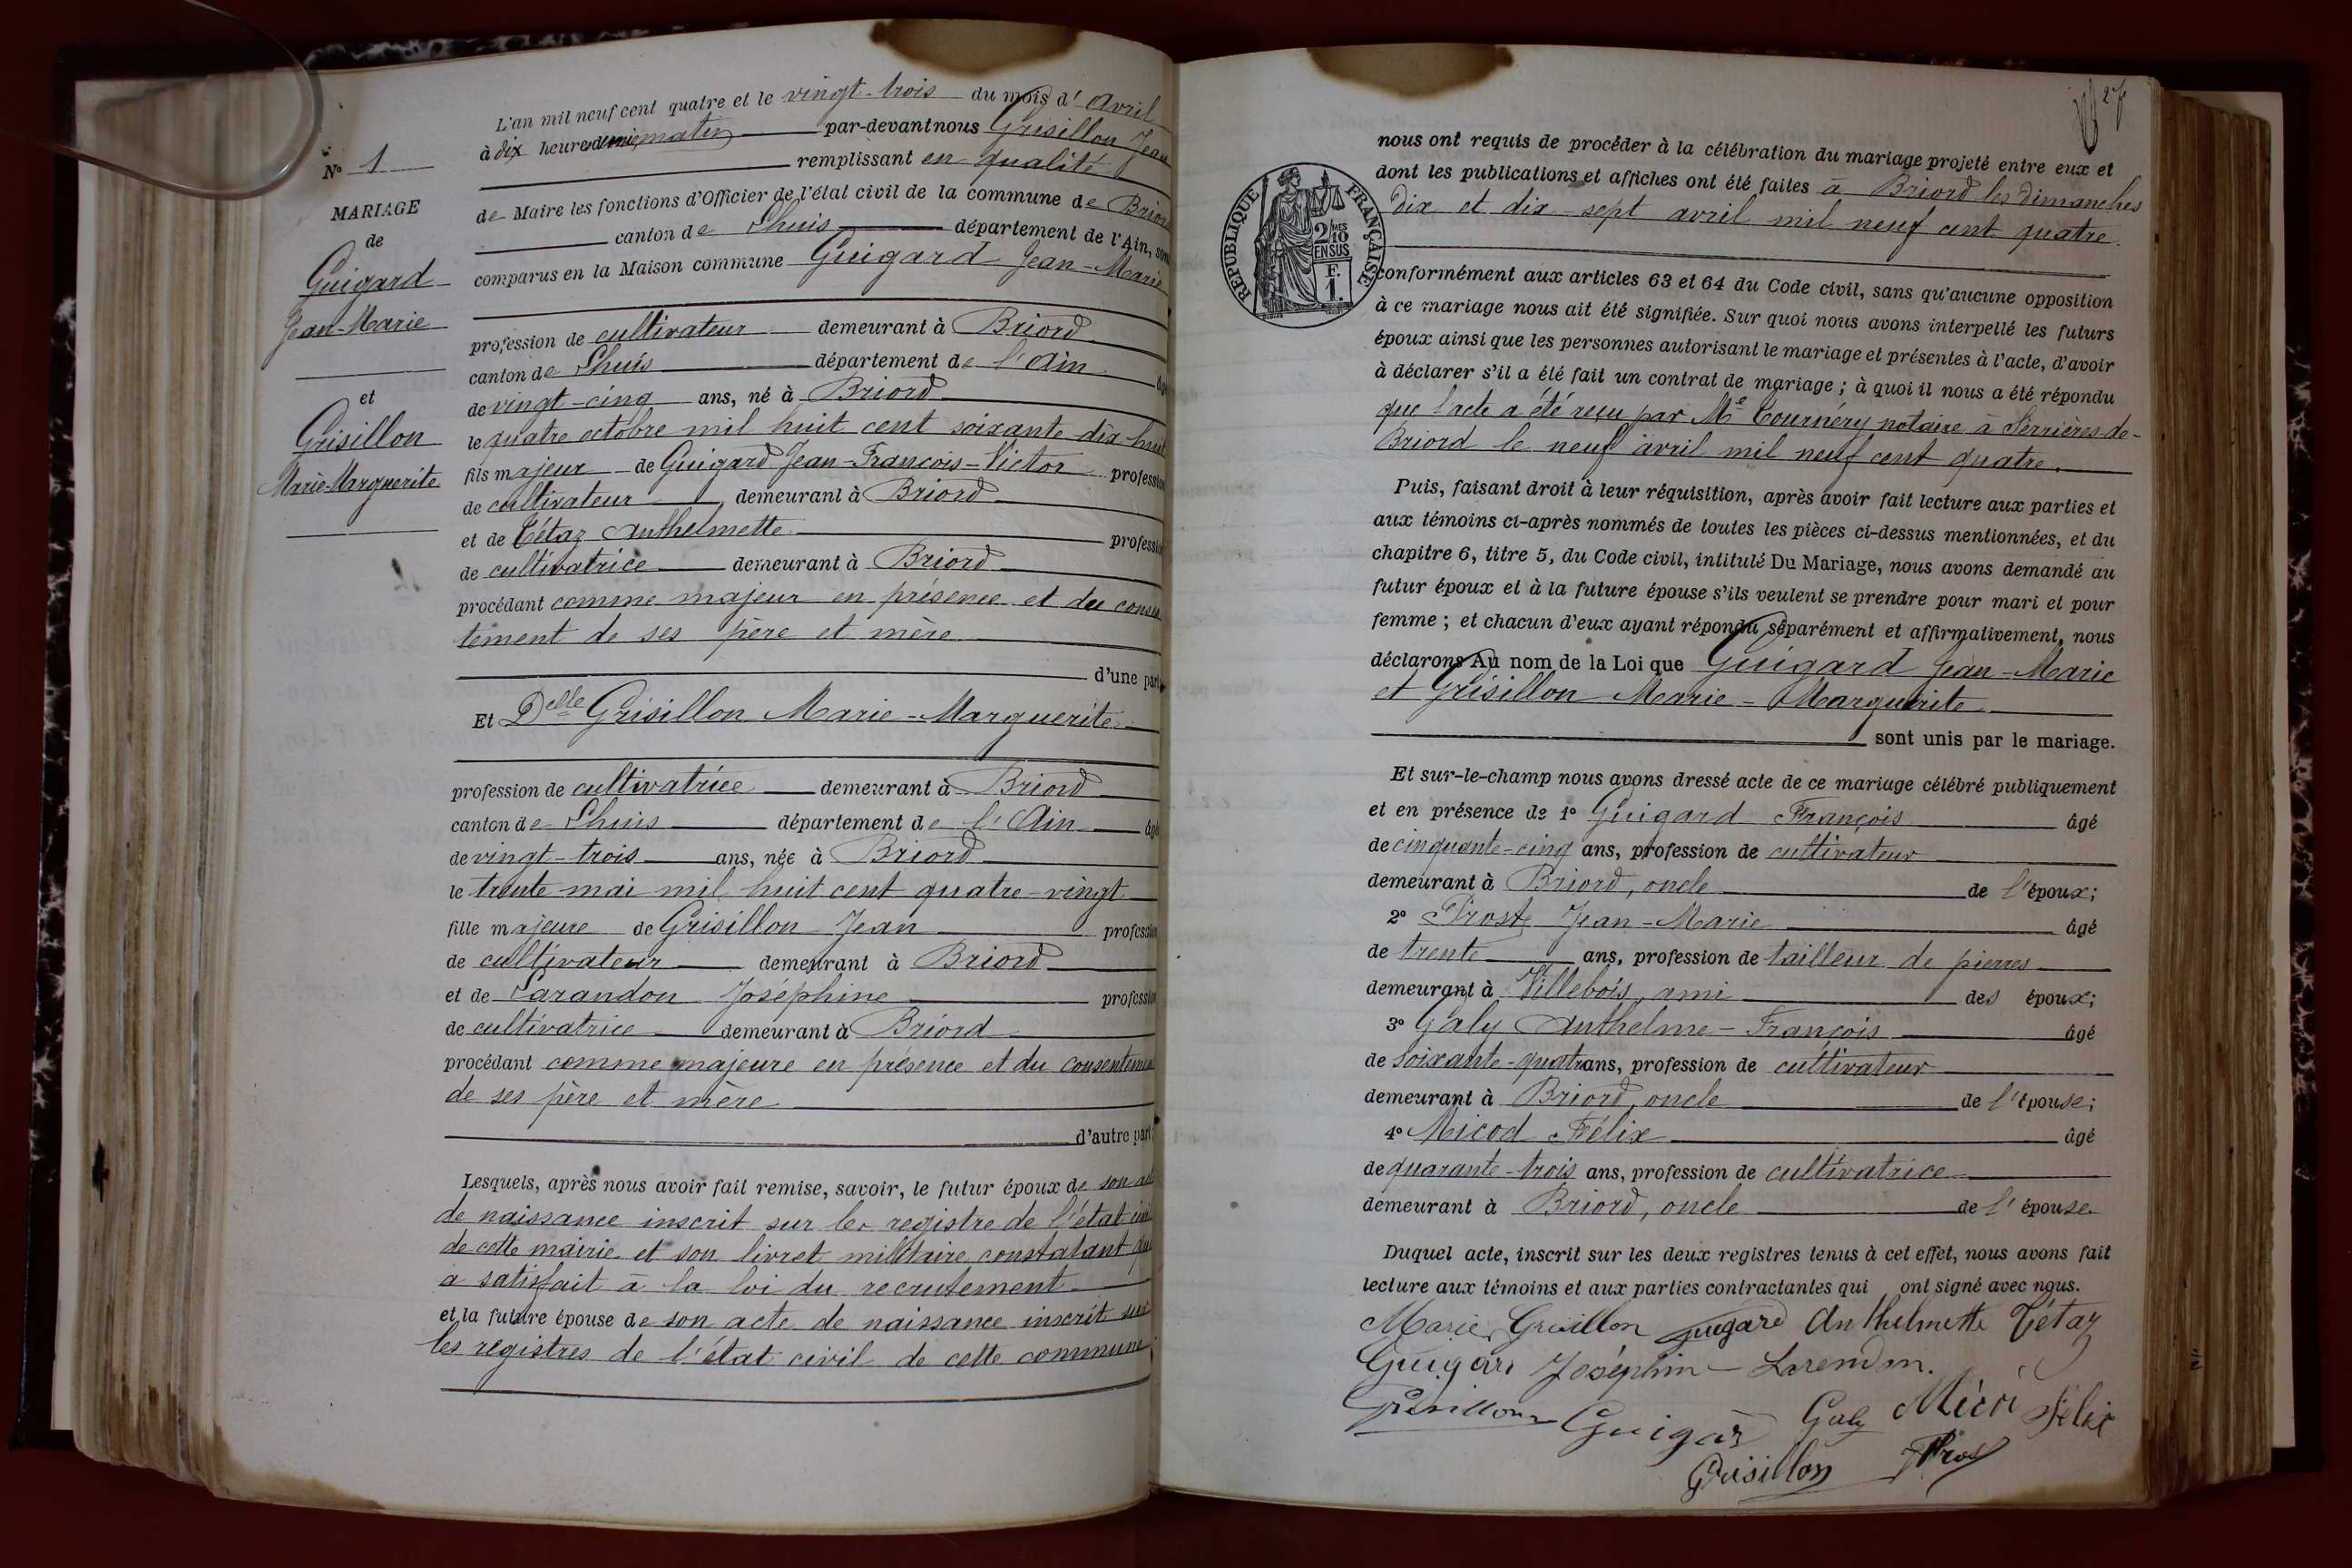 N° 1
MARIAGE
de
Guigard
Jean-Marie
et
Grisillon
Marie-Marguerite
L'an mil neuf cent quatre et le vingt-trois du mois d' Avril
à dix heures demie matin par-devant nous Grisillon Jean
remplissant en qualité
de Maire les fonctions d'Officier de l'état civil de la commune de Briord
canton de Lhuis département de l'Ain, sont
comparus en la Maison commune Guigard Jean-Marie
profession de cultivateur demeurant à Briord
canton de Lhuis département de l'Ain âgé
de vingt-cinq ans, né à Briord
le quatre octobre mil huit cent soixante dix huit
fils majeur de Guigard Jean-François-Victor profession
de cultivateur demeurant à Briord
et de Tétaz Anthelmette profession
de cultivatrice demeurant à Briord
procédant comme majeur en présence et du consen
tement de ses père et mère
d'une part
Et Delle Grisillon Marie-Marguerite
profession de cultivatrice demeurant à Briord
canton de Lhuis département de l'Ain âgé
de vingt-trois ans, née à Briord
le trente mai mil huit cent quatre-vingt
fille majeure de Grisillon Jean profession
de cultivateur demeurant à Briord
et de Larandon Joséphine profession
de cultivatrice demeurant à Briord
procédant comme majeure en présence et du consentement
de ses père et mère
d'autre part
Lesquels, après nous avoir fait remise, savoir, le futur époux de son acte
de naissance inscrit sur les registre de l'état civil
de cette mairie et son livret militaire constatant qu'il
a satisfait à la loi du recrutement
et la future épouse de son acte de naissance inscrit sur
les registres de l'état civil de cette commune
2
RÉPUBLIQUE FRANÇAISE
2/10 MES
EN SUS
F.
1.
nous ont requis de procéder à la célébration du mariage projeté entre eux et
dont les publications et affiches ont été faites à Briord les dimanches
dix et dix-sept avril mil neuf cent quatre.
conformément aux articles 63 et 64 du Code civil, sans qu'aucune opposition
à ce mariage nous ait été signifiée. Sur quoi nous avons interpellé les futurs
époux ainsi que les personnes autorisant le mariage et présentes à l'acte, d'avoir
à déclarer s'il a été fait un contrat de mariage ; à quoi il nous a été répondu
que l'acte a été reçu par Me Tournéry notaire à Serrières-de-
Briord le neuf avril mil neuf cent quatre.
Puis, faisant droit à leur réquisition, après avoir fait lecture aux parties et
aux témoins ci-après nommés de toutes les pièces ci-dessus mentionnées, et du
chapitre 6, titre 5, du Code civil, intitulé Du Mariage, nous avons demandé au
futur époux et à la future épouse s'ils veulent se prendre pour mari et pour
femme ; et chacun d'eux ayant répondu séparément et affirmativement, nous
déclarons Au nom de la Loi que Guigard Jean-Marie
et Grisillon Marie-Marguerite
sont unis par le mariage.
Et sur-le-champ nous avons dressé acte de ce mariage célébré publiquement
et en présence de 1° Guigard François âgé
de cinquante-cinq ans, profession de cultivateur
demeurant à Briord, oncle de l'époux;
2° Prost Jean-Marie âgé
de trente ans, profession de tailleur de pierres
demeurant à Villebois, ami des époux;
3° Galy Anthelme-François âgé
de soixante-quatre ans, profession de cultivateur
demeurant à Briord, oncle de l'épouse;
4° Micod Félix âgé
de quarante-trois ans, profession de cultivatrice
demeurant à Briord, oncle de l'épouse
Duquel acte, inscrit sur les deux registres tenus à cet effet, nous avons fait
lecture aux témoins et aux parties contractantes qui ont signé avec nous.
Marie Grisillon Guigard Anthelmette Tétaz
Guigard Joséphin Larendon.
Grisillon Guigard Galy Micod Félix
Grisillon Prost